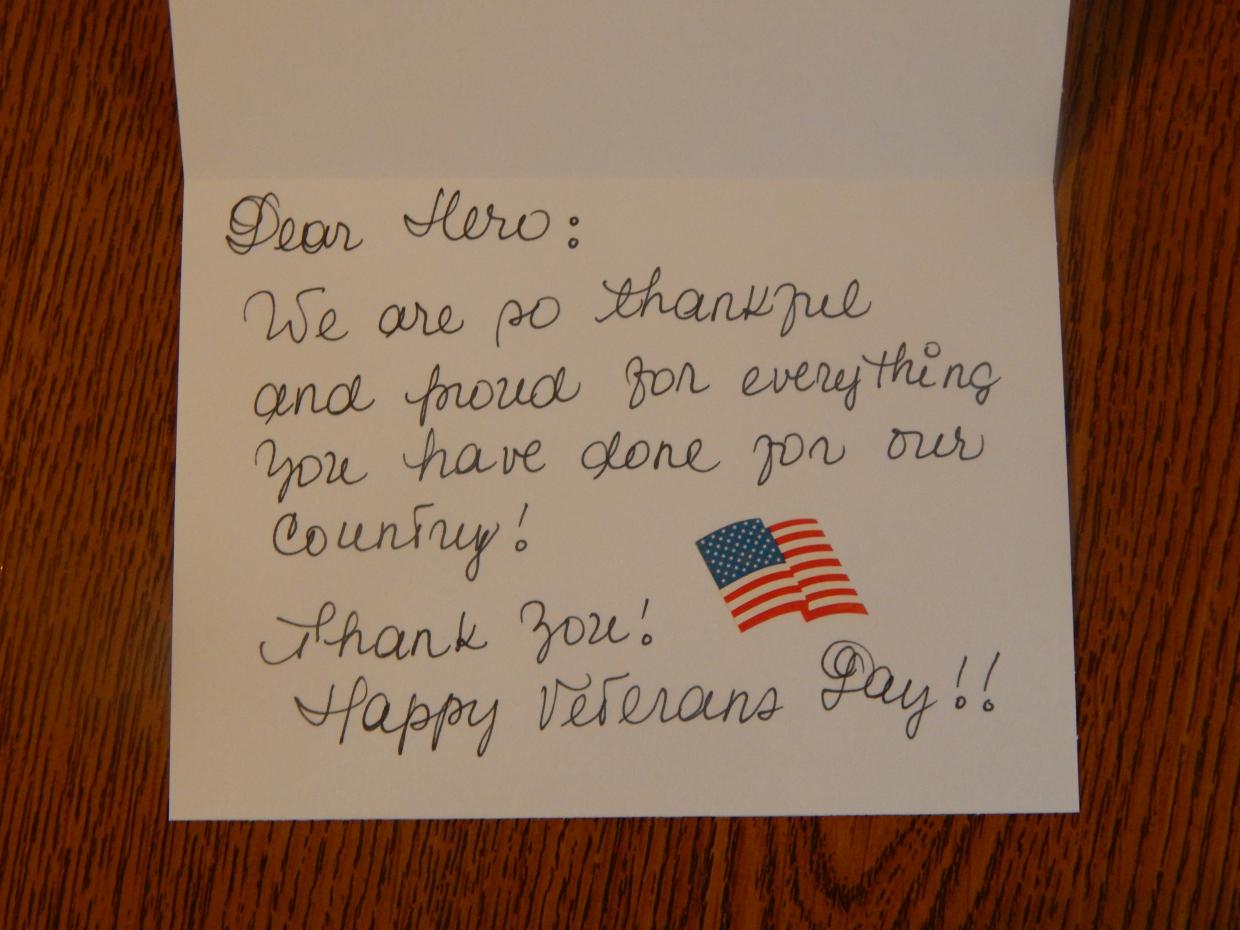 Dear Hero:
We are so thankful
and proud for everything
you have done for our
country!
Thank You!
Happy Veterans Day!!